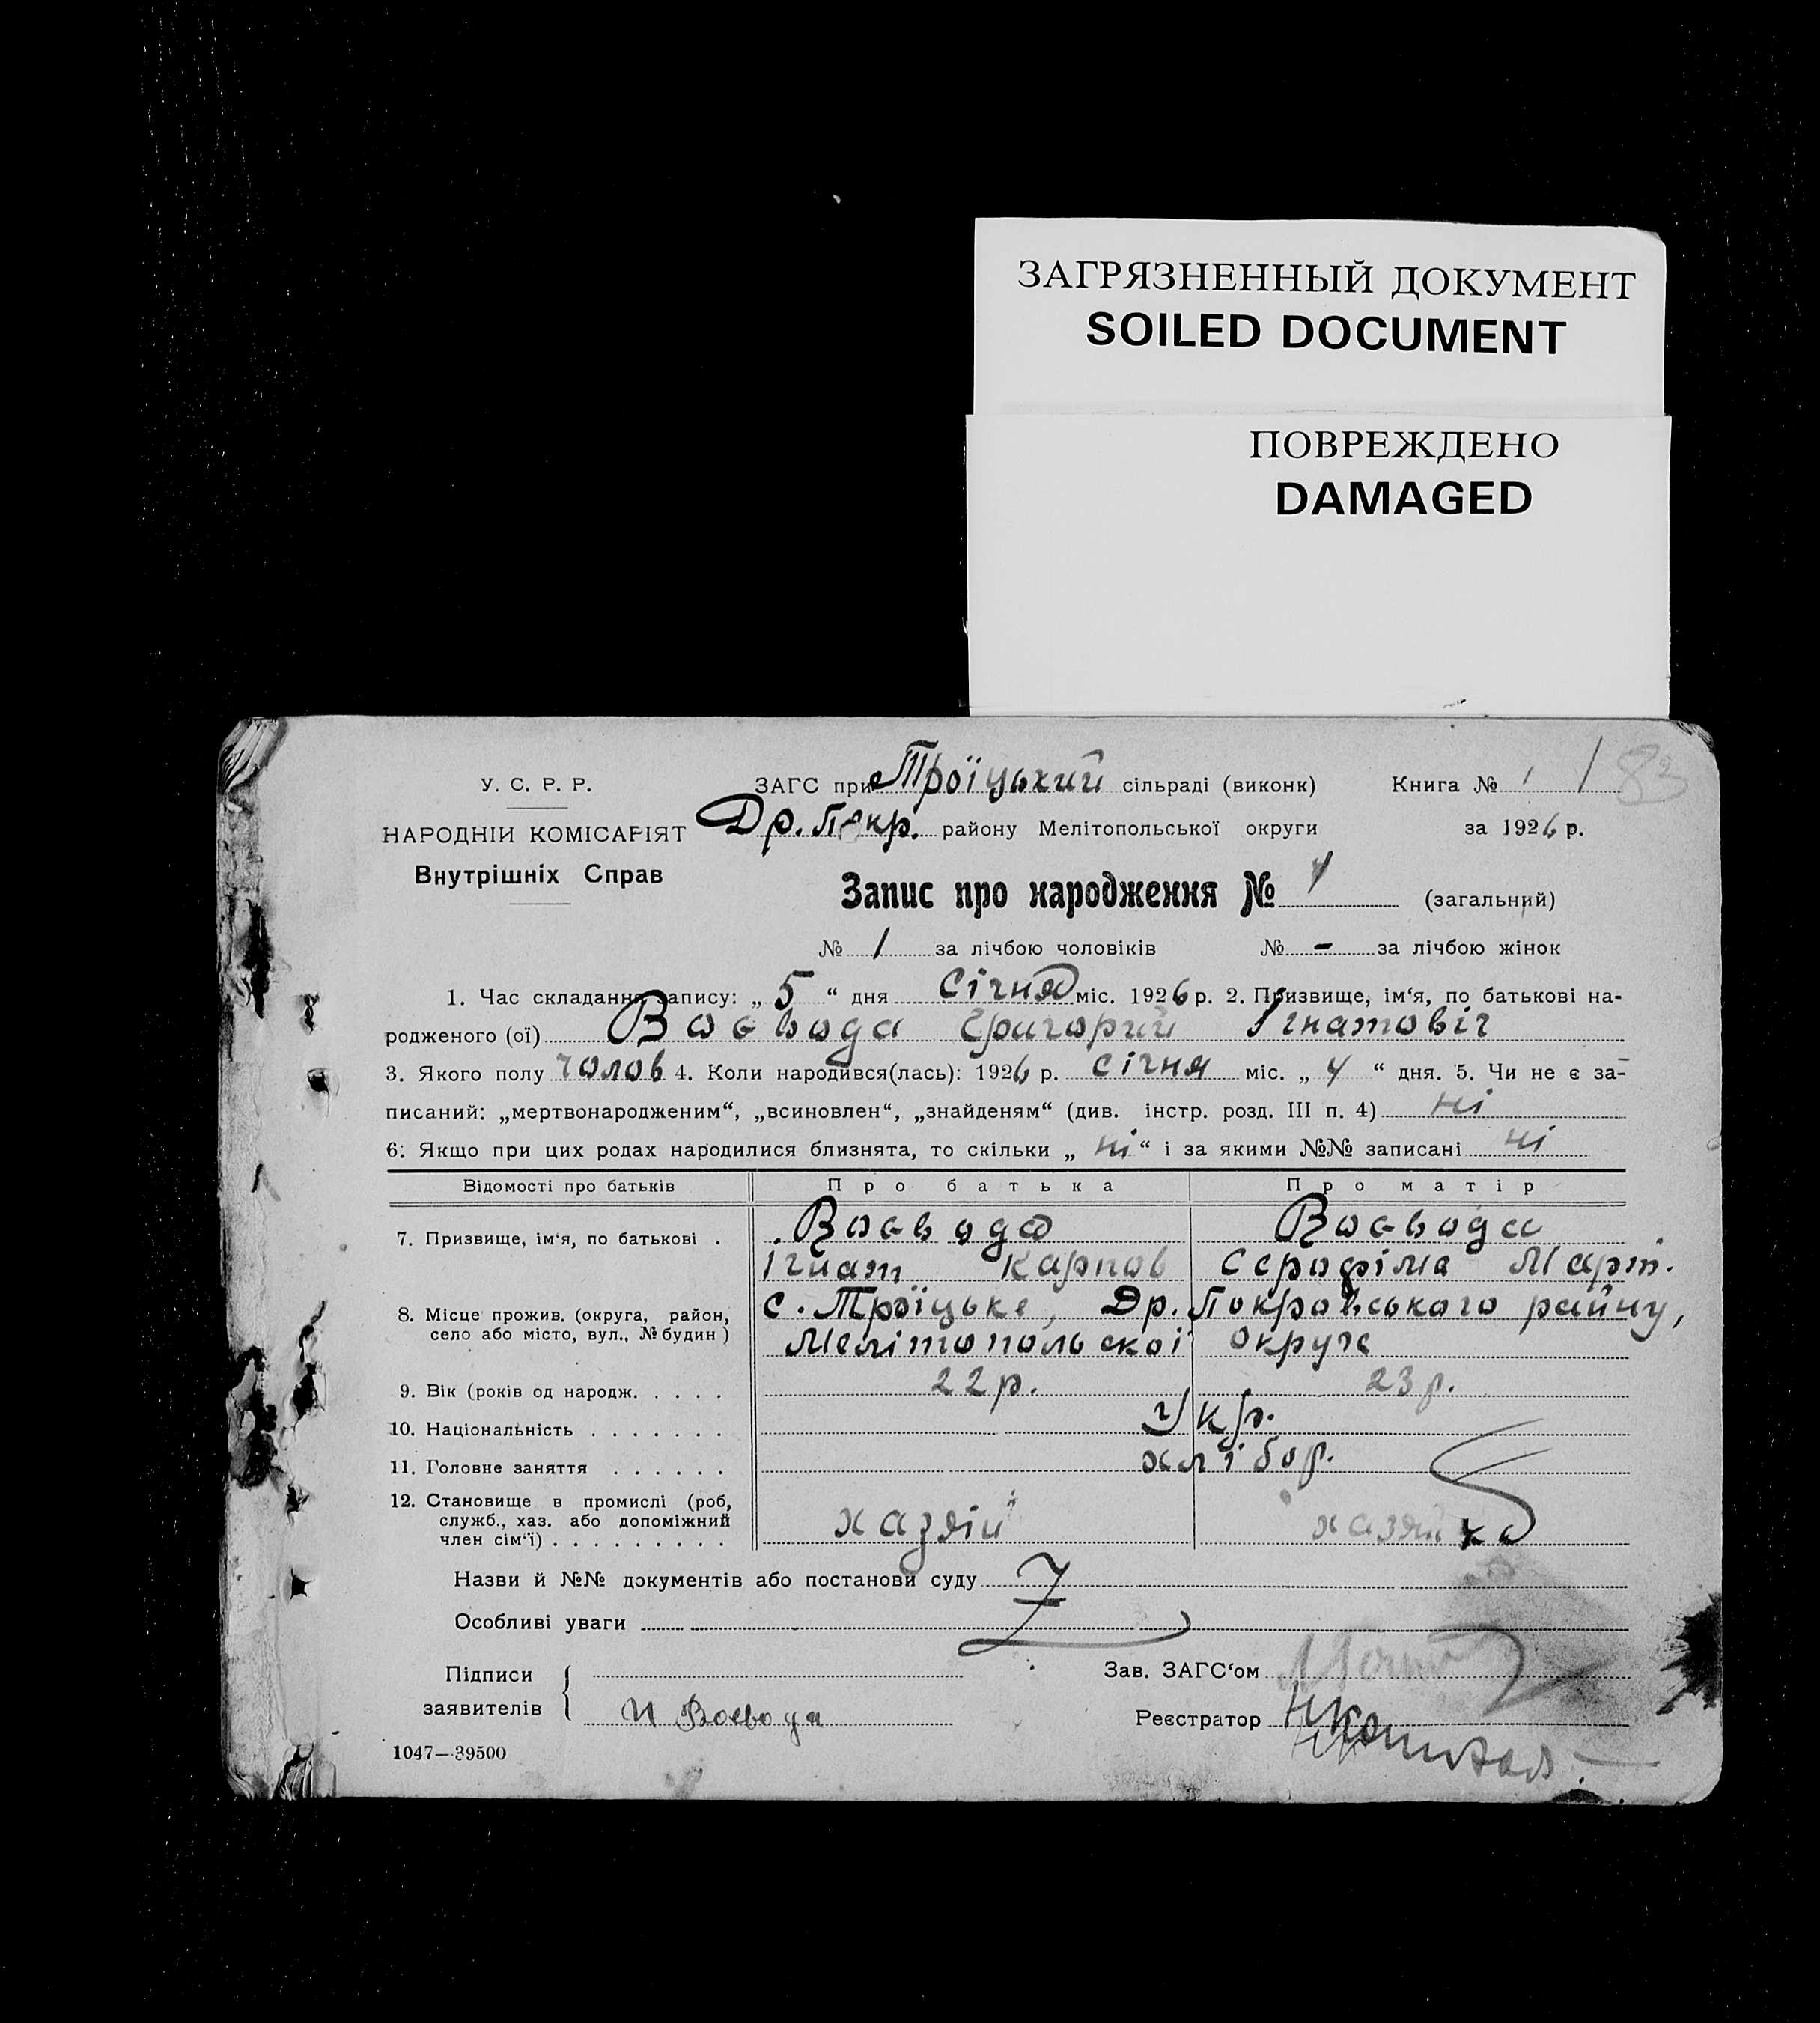 ЗАГРЯЗНЕННЫЙ ДОКУМЕНТ
SOILED DOCUMENT
ПОВРЕЖДЕНО
DAMAGED
У. С. Р. Р.
НАРОДНІЙ КОМІСАРІЯТ
Внутрішніх Справ
ЗАГС при Троїцький сільраді (виконк)
Др. Покр. району Мелітопольської округи
Книга № 1 83
за 1926 р.
Запис про народження № 1 (загальний)
№ 1 за лічбою чоловіків № - за лічбою жінок
1. Час складання запису: „ 5 “ дня Січня міс. 1926 р. 2. Призвище, ім‘я, по батькові на-
родженого (ої) Воєвода Григорий Ігнатовіч
3. Якого полу чолов 4. Коли народився(лась): 1926 р. січня міс. „ 4 “ дня. 5. Чи не є за-
писаний: „мертвонародженим“, „всиновлен“, „знайденям“ (див. інстр. розд. III п. 4) ні
6. Якщо при цих родах народилися близнята, то скільки „ ні “ і за якими №№ записані ні
Відомості про батьків Про батька Про матір
7. Призвище, ім‘я, по батькові . Воєвода Воєвода
Ігнат Карпов Серафіма Март.
8. Місце прожив. (округа, район, с. Троїцьке, Др. Покровського району,
село або місто, вул., № будин) Мелітопольскої округе
9. Вік (років од народж. . . . . 22 р. 23 р.
10. Національність . . . . . . . Укр.
11. Головне заняття . . . . . . хлібор.
12. Становище в промислі (роб,
служб., хаз. або допоміжний
член сім‘ї) . . . . . . . . . хазяїн хазяйка
Назви й №№ документів або постанови суду
Особливі уваги
Підписи
заявителів И Воевода
Зав. ЗАГС‘ом
Реєстратор
1047—39500